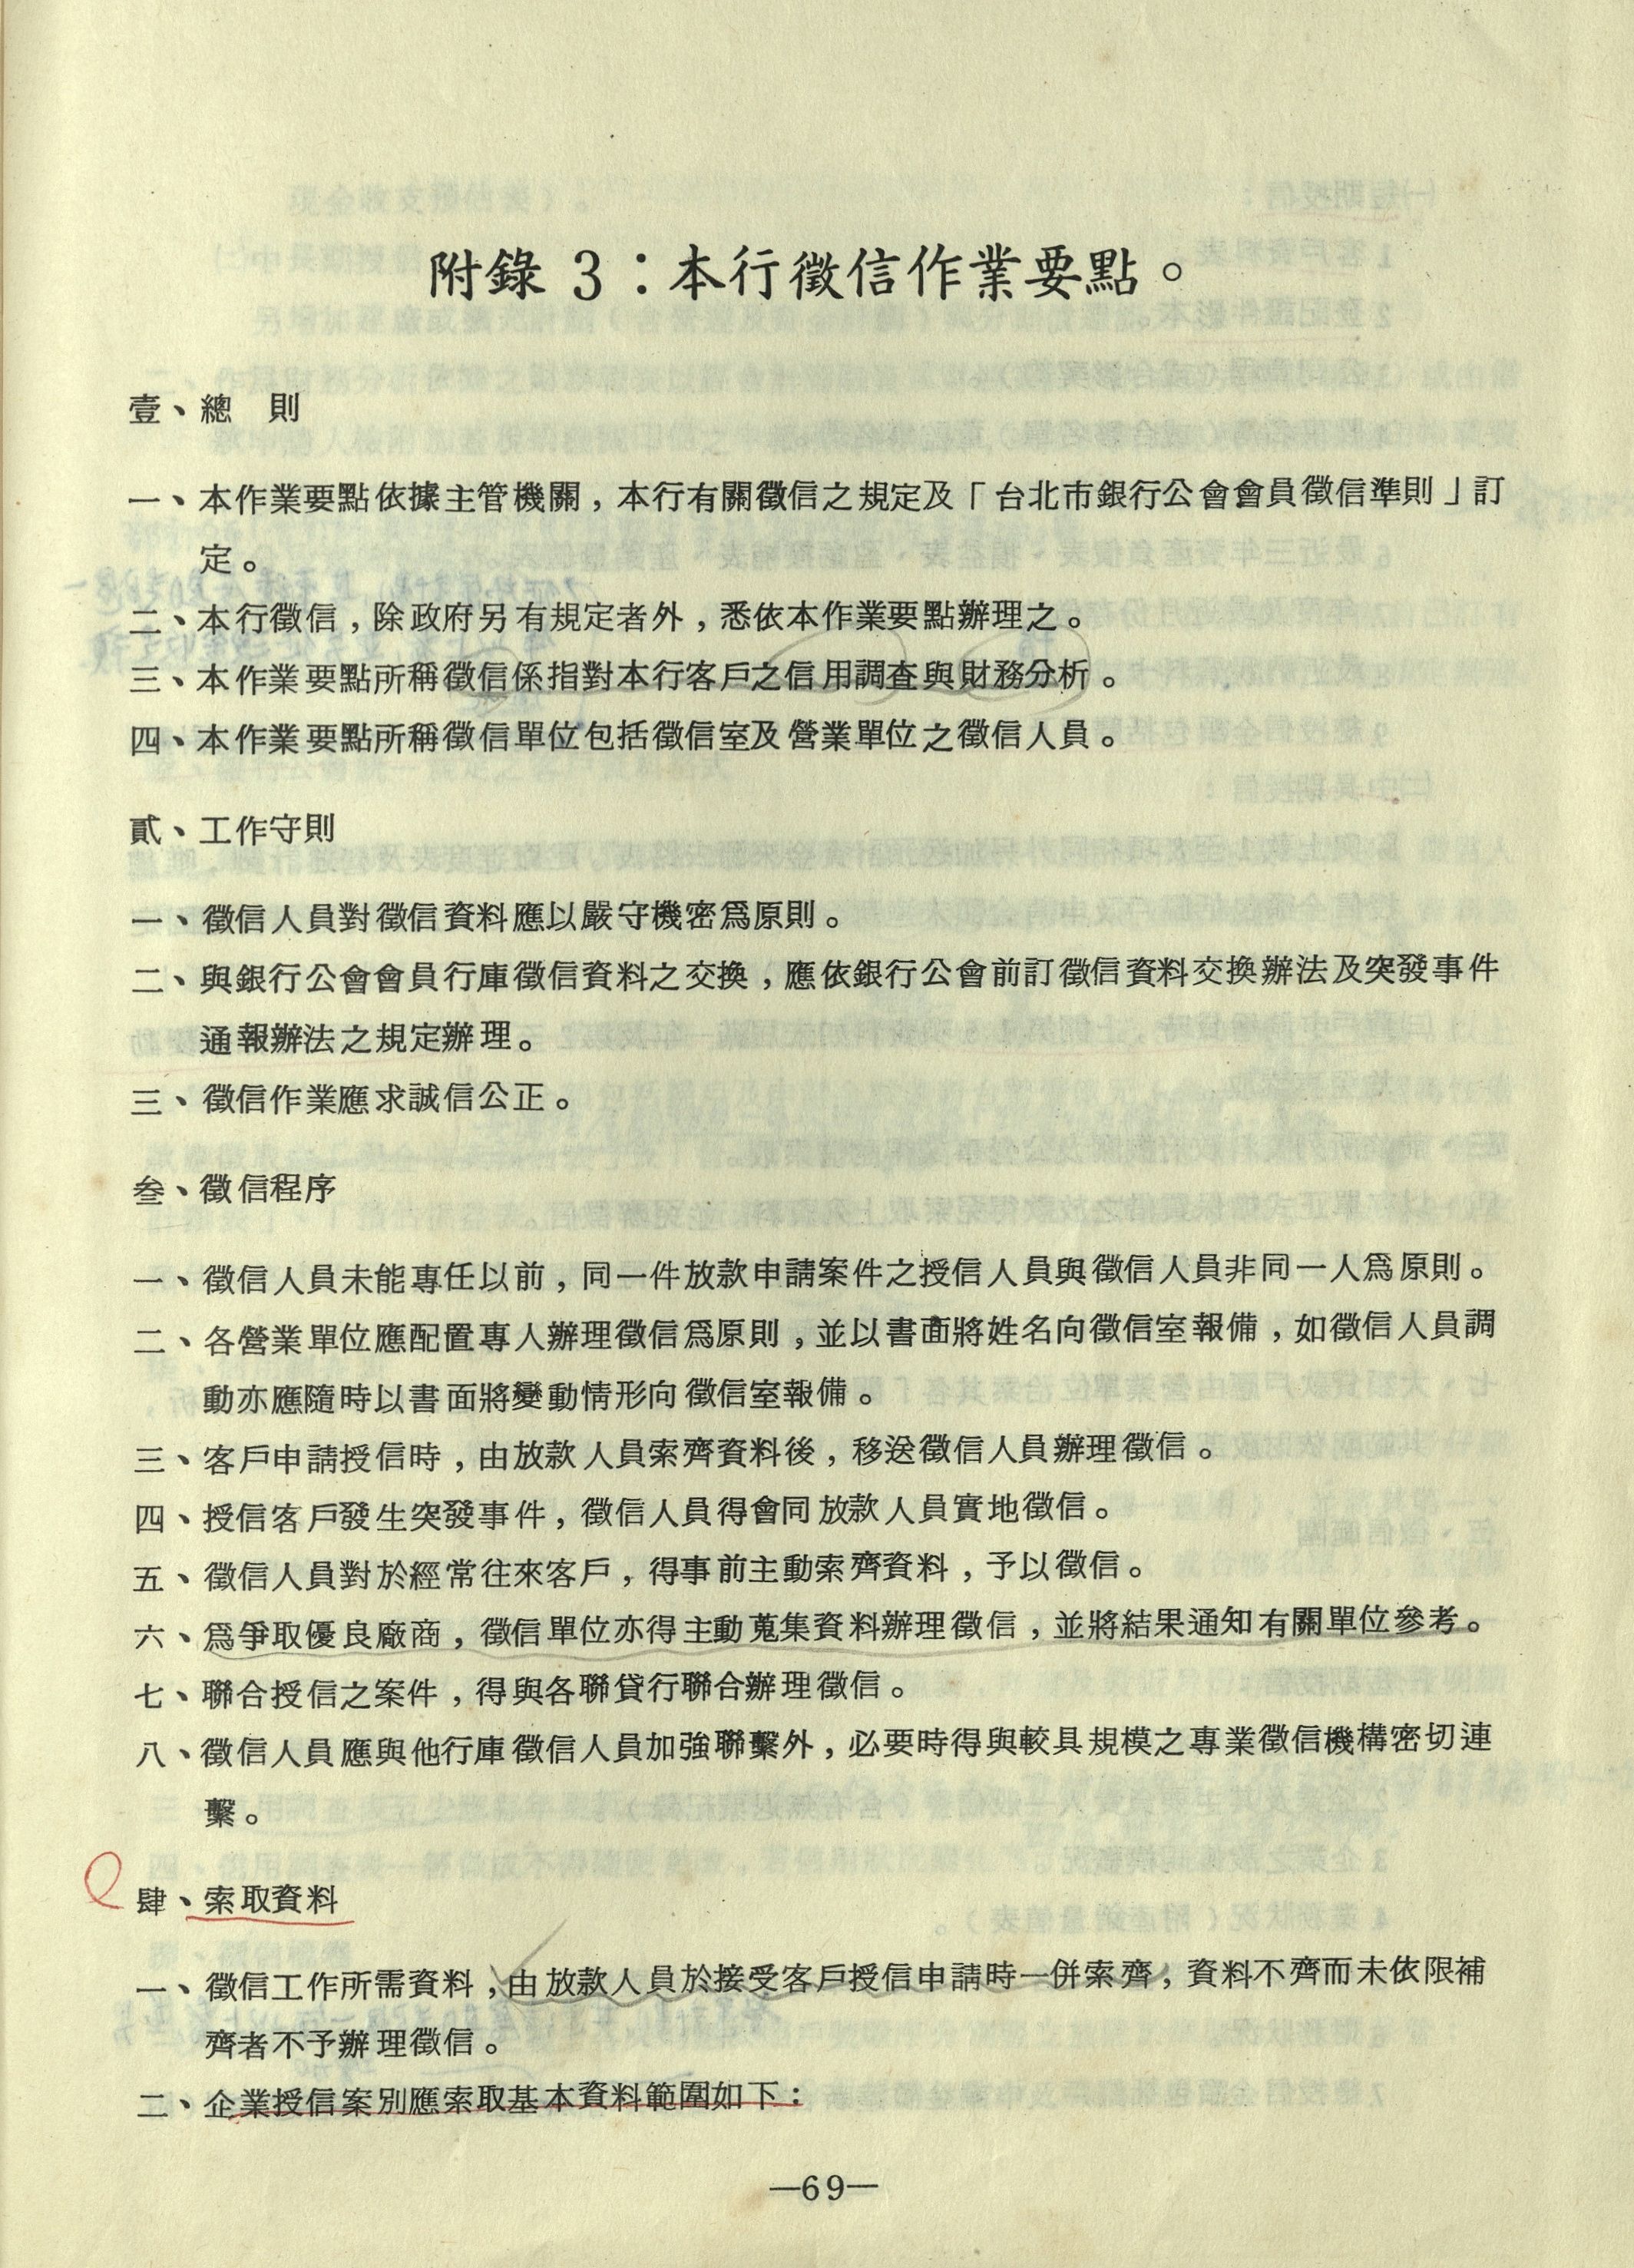 附錄 3：本行徵信作業要點。
壹、總　則
一、本作業要點依據主管機關，本行有關徵信之規定及「台北市銀行公會會員徵信準則」訂
定。
二、本行徵信，除政府另有規定者外，悉依本作業要點辦理之。
三、本作業要點所稱徵信係指對本行客戶之信用調查與財務分析。
四、本作業要點所稱徵信單位包括徵信室及營業單位之徵信人員。
貳、工作守則
一、徵信人員對徵信資料應以嚴守機密爲原則。
二、與銀行公會會員行庫徵信資料之交換，應依銀行公會前訂徵信資料交換辦法及突發事件
通報辦法之規定辦理。
三、徵信作業應求誠信公正。
叁、徵信程序
一、徵信人員未能專任以前，同一件放款申請案件之授信人員與徵信人員非同一人爲原則。
二、各營業單位應配置專人辦理徵信爲原則，並以書面將姓名向徵信室報備，如徵信人員調
動亦應隨時以書面將變動情形向徵信室報備。
三、客戶申請授信時，由放款人員索齊資料後，移送徵信人員辦理徵信。
四、授信客戶發生突發事件，徵信人員得會同放款人員實地徵信。
五、徵信人員對於經常往來客戶，得事前主動索齊資料，予以徵信。
六、爲爭取優良廠商，徵信單位亦得主動蒐集資料辦理徵信，並將結果通知有關單位參考。
七、聯合授信之案件，得與各聯貸行聯合辦理徵信。
八、徵信人員應與他行庫徵信人員加強聯繫外，必要時得與較具規模之專業徵信機構密切連
繫。
肆、索取資料
一、徵信工作所需資料，由放款人員於接受客戶授信申請時一併索齊，資料不齊而未依限補
齊者不予辦理徵信。
二、企業授信案別應索取基本資料範圍如下：
—69—